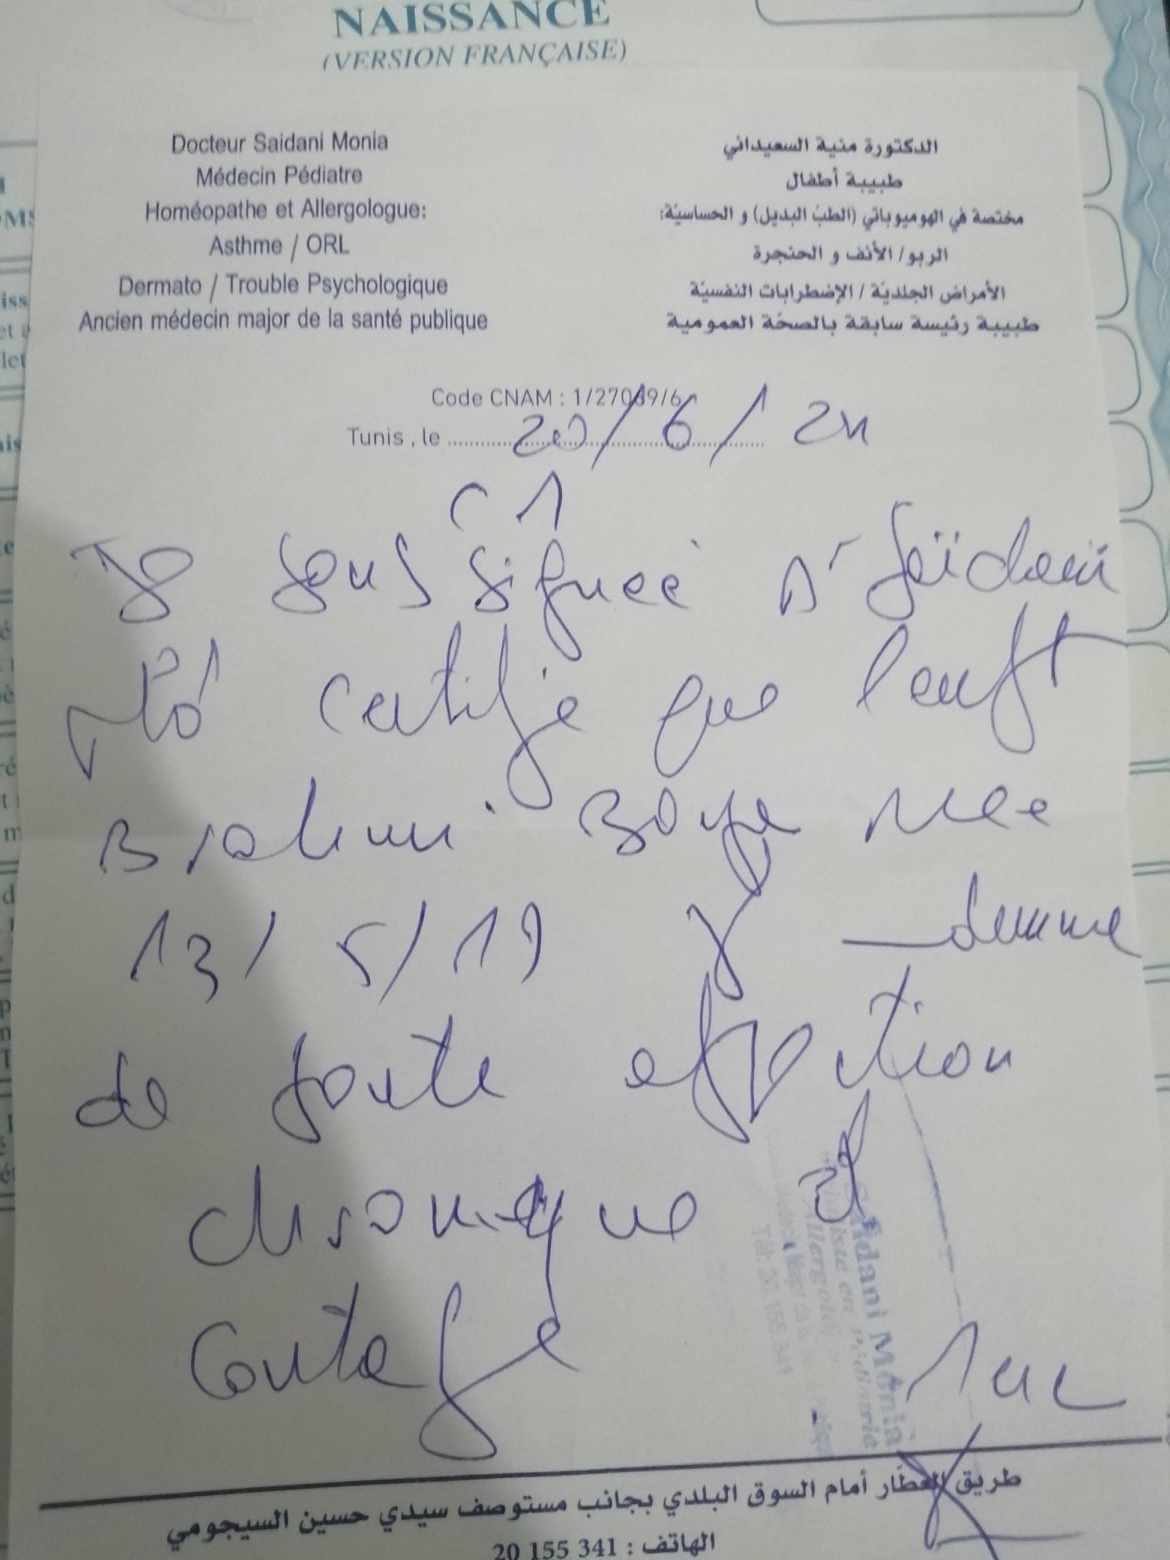 NAISSANCE
(VERSION FRANÇAISE)
Docteur Saidani Monia
Médecin Pédiatre
Homéopathe et Allergologue:
Asthme / ORL
Dermato / Trouble Psychologique
Ancien médecin major de la santé publique
الدكتورة منية السعيداني
طبيبة أطفال
مختصة في الهوميوباتي (الطبّ البديل) و الحساسيّة:
الربو/ الأنف و الحنجرة
الأمراض الجلديّة / الإضطرابات النفسيّة
طبيبة رئيسة سابقة بالصحّة العمومية
Code CNAM : 1/27089/6
Tunis , le 20/6/24
Je soussignée Dr Saïdani
certifie que l'enft
Brahmi née
13/5/19
de toute affection
chronique et
contage
Saidani Monia
طريق العطّار أمام السوق البلدي بجانب مستوصف سيدي حسين السيجومي
الهاتف : 341 155 20